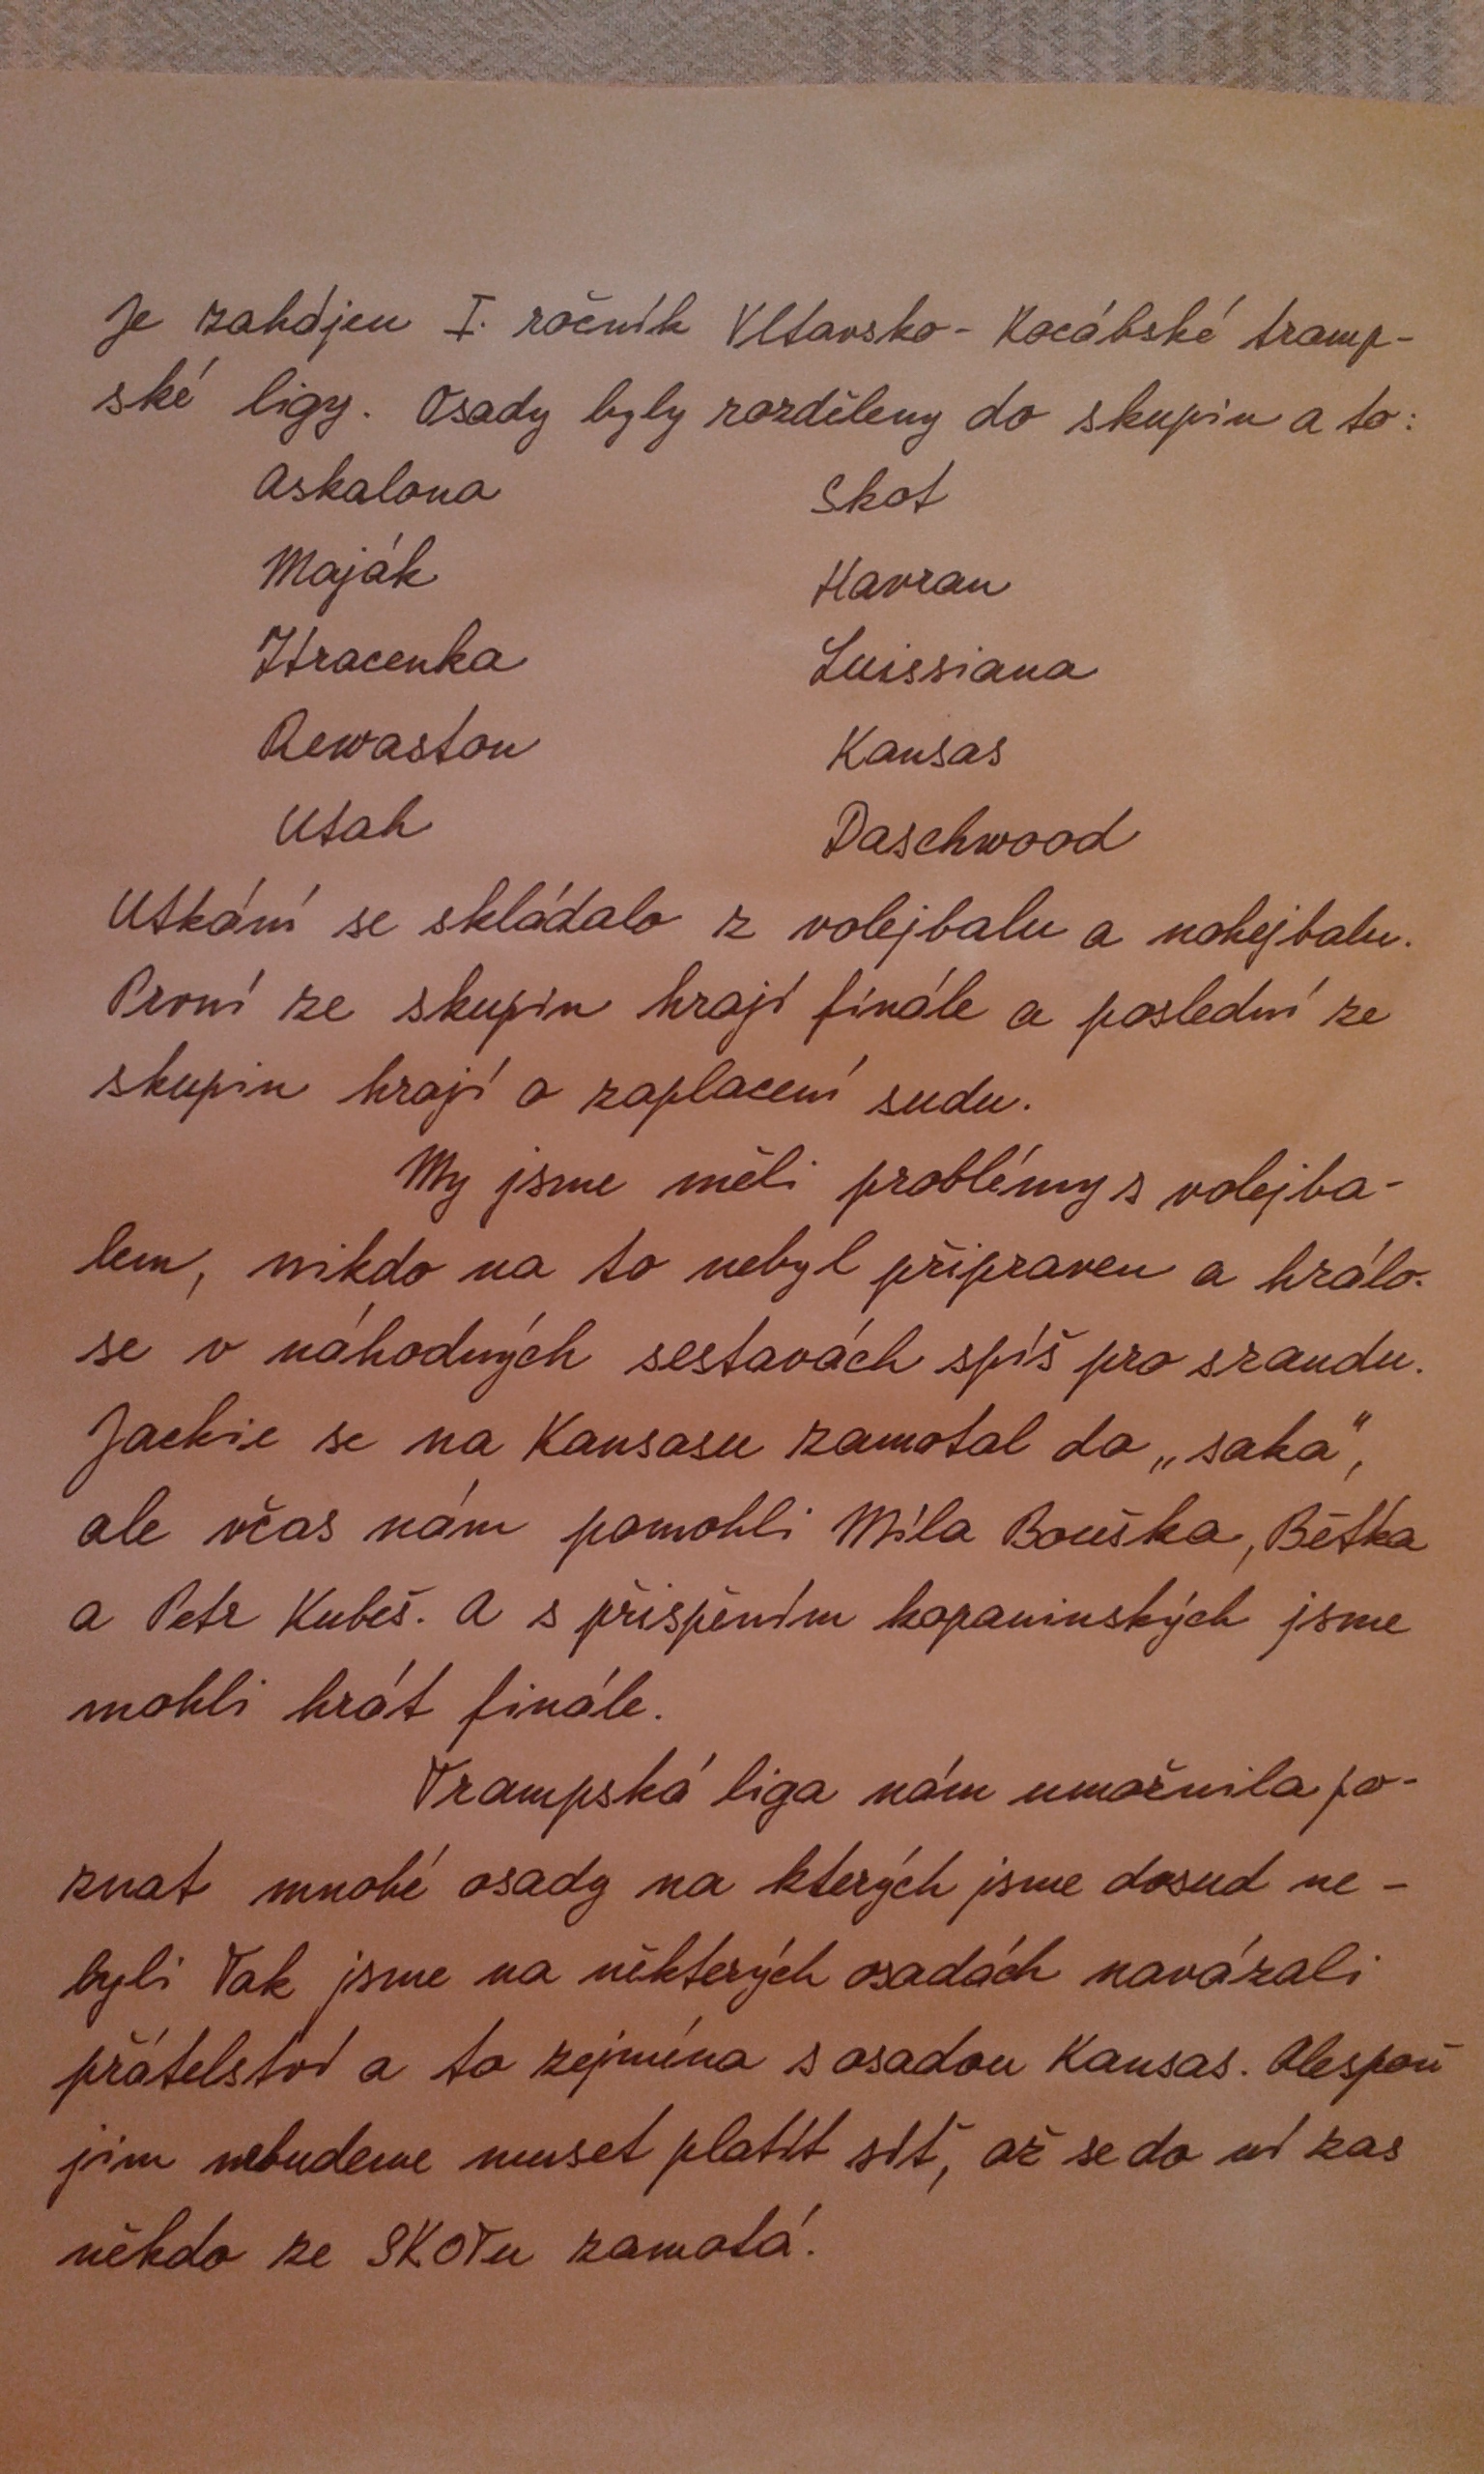 Je zahájen I. ročník Vltavsko - Kocábské tramp-
ské ligy. Osady byly rozděleny do skupin a to:
Askalona Skot
Maják Havran
Ztracenka Luissiana
Rewaston Kansas
Utah Daschwood
Utkání se skládalo z volejbalu a nohejbalu.
První ze skupin hrají finále a poslední ze
skupin hrají o zaplacení sudu.
My jsme měli problémy s volejba-
lem, nikdo na to nebyl připraven a hrálo.
se v náhodných sestavách spíš pro srandu.
Jackie se na Kansasu zamotal do „saka",
ale včas nám pomohli Míla Bouška, Bětka
a Petr Kubeš. A s přispěním kopaninských jsme
mohli hrát finále.
Trampská liga nám umožnila po-
znat mnohé osady na kterých jsme dosud ne-
byli Tak jsme na některých osadách navázali
přátelství a to zejména s osadou Kansas. Alespoň
jim nebudeme muset platit síť, až se do ní zas
někdo ze SKOTu zamotá.